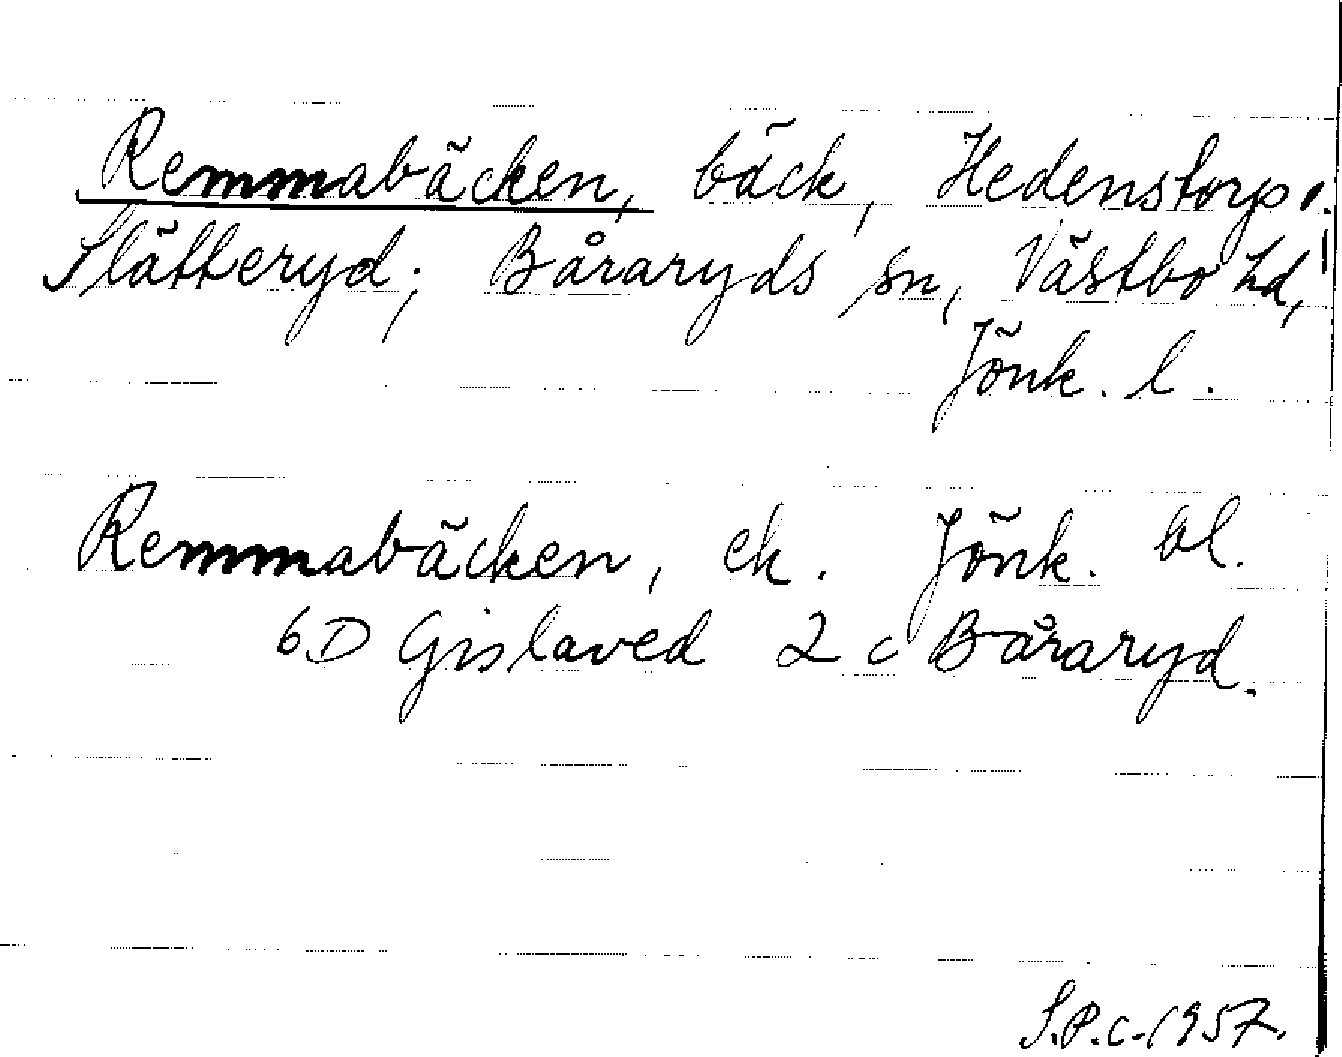 Remmabäcken, bäck, Hedenstorp o.
Slätteryd; Båraryds sn, Västbo hd,
Jönk. l.
Remmabäcken, ek. Jönk. bl.
6D Gislaved 2 c Båraryd.
S.P.C. 1957.